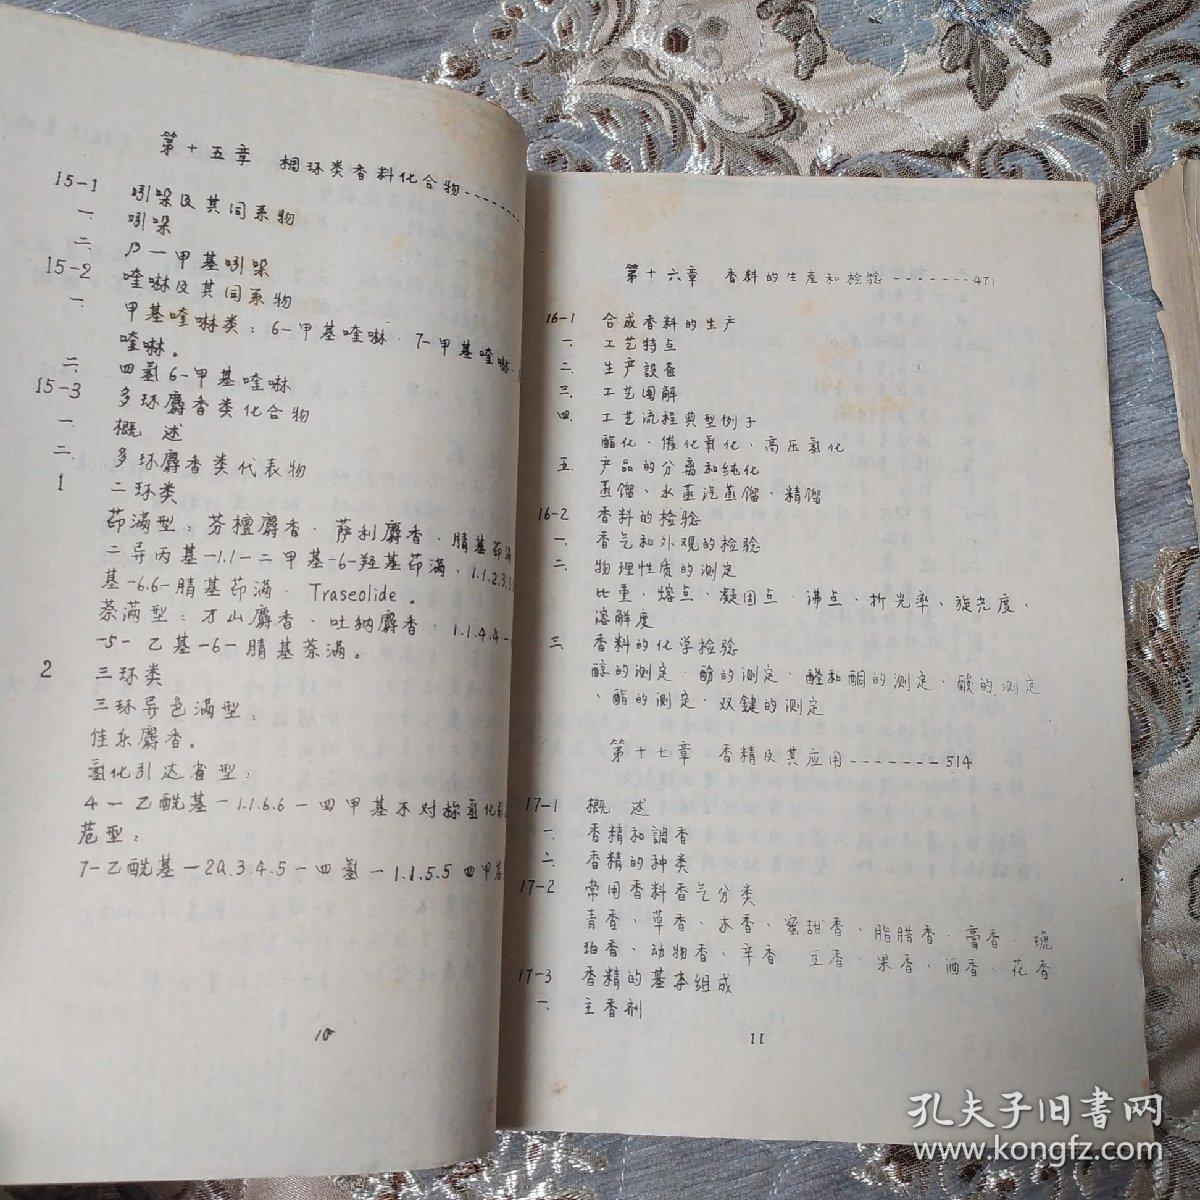 第十五章 稠环类香料化合物
15-1 吲哚及其同系物
一、吲哚
二、β-甲基吲哚
15-2 喹啉及其同系物
一、甲基喹啉类：6-甲基喹啉、7-甲基喹啉
喹啉。
二、四氢6-甲基喹啉
15-3 多环麝香类化合物
一、概 述
二、多环麝香类代表物
1 二环类
茚满型：芬檀麝香、萨利麝香、腈基茚满
二异丙基-1.1-二甲基-6-羟基茚满、1.1.2.3.3
基-6.6-腈基茚满、Traseolide。
萘满型：万山麝香、吐纳麝香、1.1.4.4-
-5-乙基-6-腈基萘满。
2 三环类
三环异色满型：
佳乐麝香。
氢化引达省型：
4-乙酰基-1.1.6.6-四甲基不对称氢化引
苊型：
7-乙酰基-2a.3.4.5-四氢-1.1.5.5四甲基
10
第十六章 香料的生產和检验-------471
16-1 合成香料的生产
一、工艺特点
二、生产設备
三、工艺图解
四、工艺流程典型例子
酯化、催化氧化、高压氢化
五、产品的分离和纯化
蒸馏、水蒸汽蒸馏、精馏
16-2 香料的检验
一、香气和外观的检验
二、物理性质的测定
比重、熔点、凝固点、沸点、折光率、旋光度、
溶解度
三、香料的化学检验
醇的测定、酚的测定、醛和酮的测定、酸的测定
、酯的测定、双鍵的测定
第十七章 香精及其应用-------514
17-1 概 述
一、香精和調香
二、香精的种类
17-2 常用香料香气分类
青香、草香、木香、蜜甜香、脂腊香、膏香、琥
珀香、动物香、辛香 豆香、果香、酒香、花香
17-3 香精的基本组成
一、主香剂
11
孔夫子旧書网
www.kongfz.com